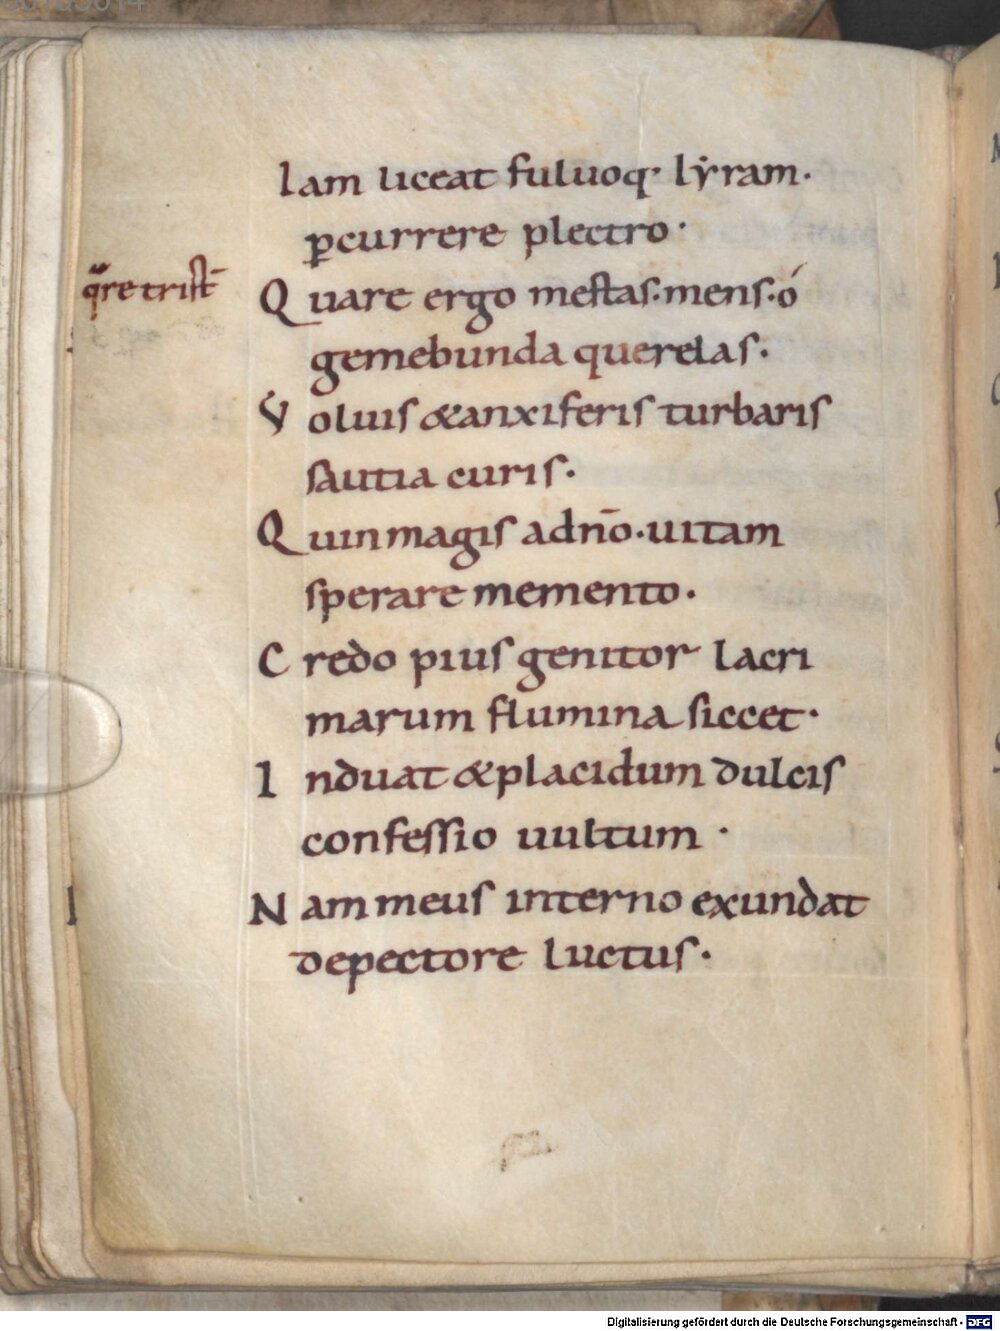 Iam liceat fuluoq· lẏram·
ꝑcurrere plectro·
q̄re trist̄
Quare ergo mestas·mens·ó
gemebunda querelas·
Voluis &anxiferis turbaris
sautia curis·
Quin magis adn̄o·uitam
sperare memento·
Credo pius genitor lacri
marum flumina siccet·
Induat &placidum dulcis
confessio uultum·
Nam meus interno exundat
depectore luctus·
Digitalisierung gefördert durch die Deutsche Forschungsgemeinschaft - DFG